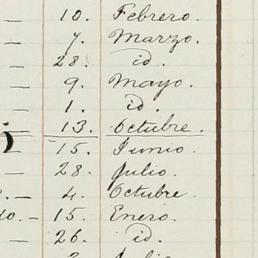 — 10. Febrero.
— 7. Marzo.
— 28. id.
— 9. Mayo.
— 1. id.
— 13. Octubre.
— 15. Junio.
— 28. Julio.
— 4. Octubre.
— 15. Enero.
— 26. id.
Julio